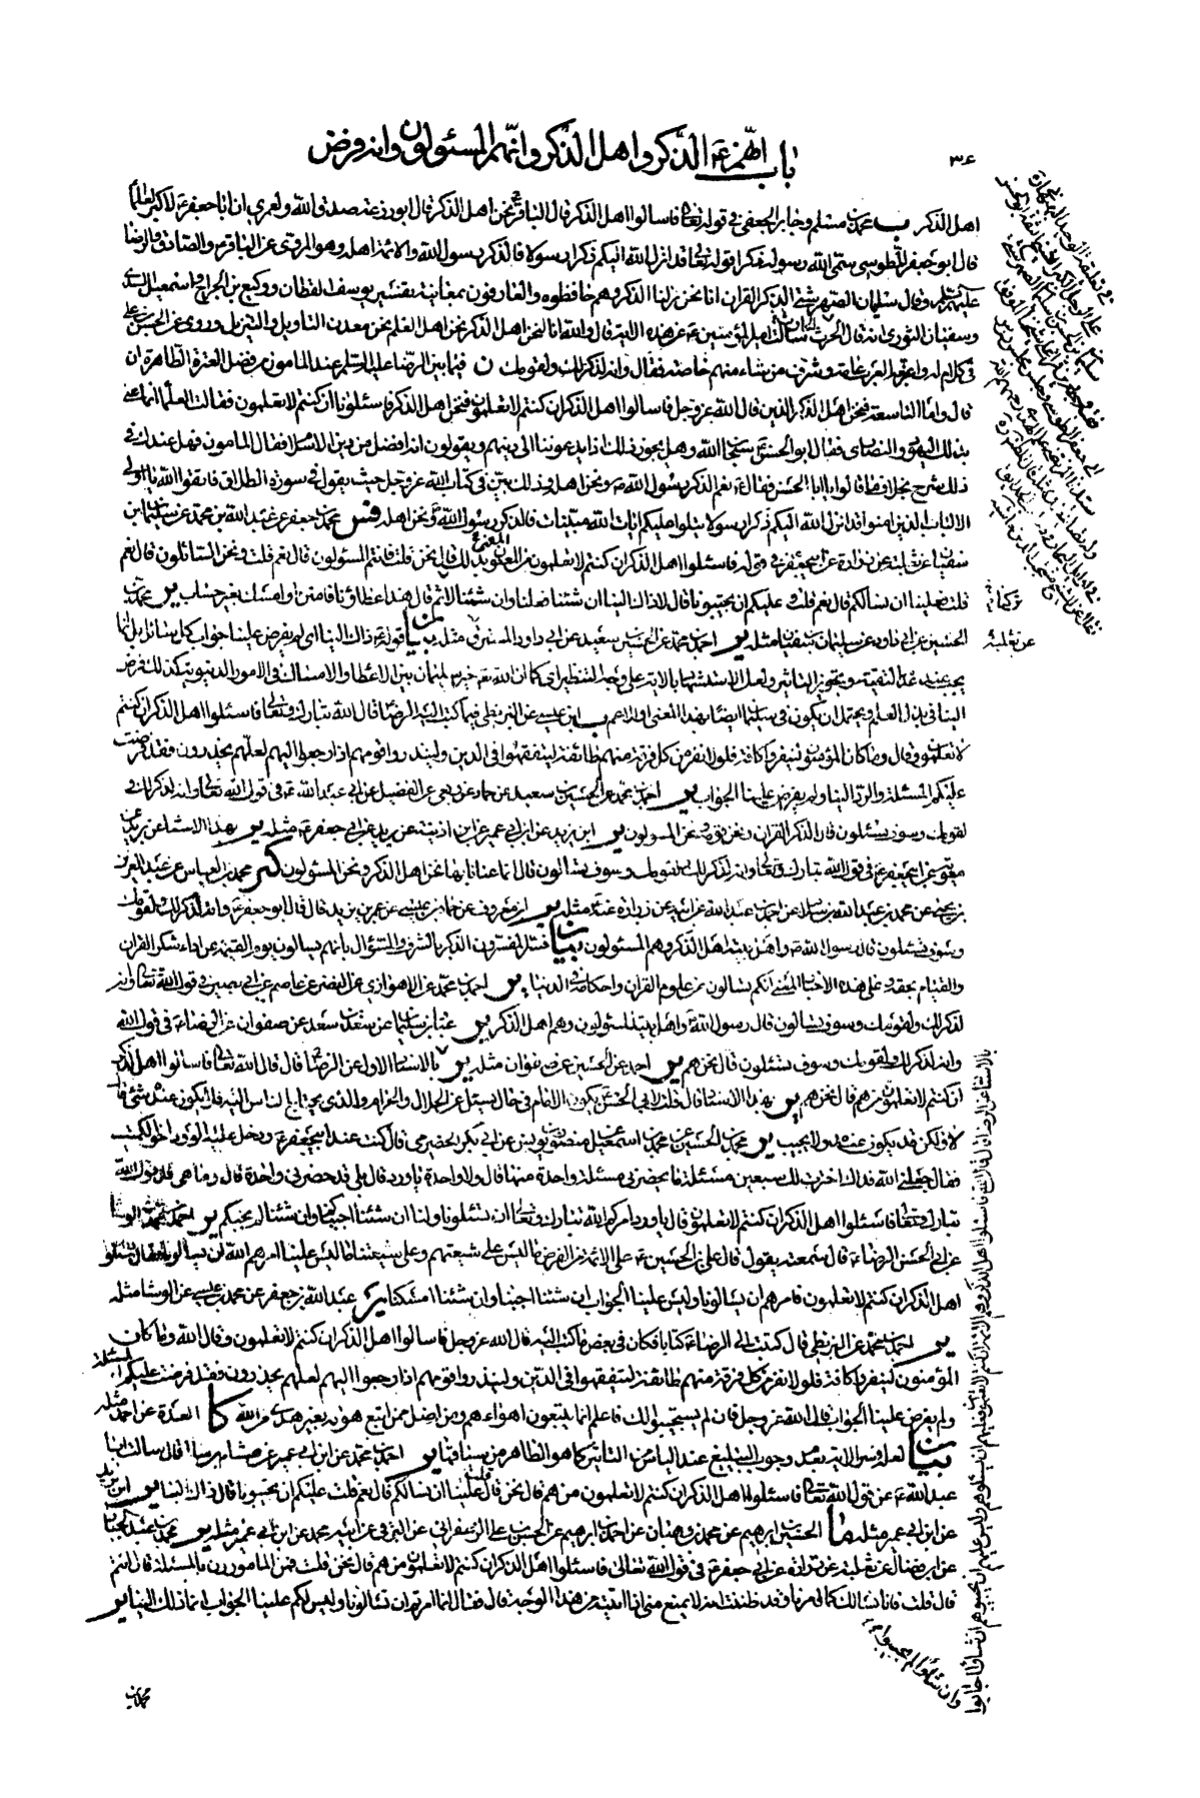 ٣٤
باب انهم ع الذكر واهل الذكر وانهم المسئولون وانه فرض
اهل الذكر ب محمد بن مسلم وجابر الجعفي في قوله تعالى فاسالوا اهل الذكر قال الباقر نحن اهل الذكر قال ابو زرعة صدق والله ولعمري ان ابا جعفر ع لاكبر العلما
قال ابو جعفر الطوسي سمى الله رسوله ذكرا قوله تعالى قد انزل الله اليكم ذكرا رسولا فالذكر رسول الله والائمة اهله وهو المروي عن الباقر والصادق والرضا
عليهم السلم وقال سليمان الصهرشتي الذكر القران انا نحن نزلنا الذكر وهم حافظوه والعارفون بمعانيه تفسير يوسف القطان ووكيع بن الجراح واسمعيل السدي
وسفيان الثوري انه قال الحرث سالت امير المؤمنين ع عن هذه الاية قال والله انا لنحن اهل الذكر نحن اهل العلم نحن معدن التاويل والتنزيل وروي عن الحسن بن علي
في كلام له واعز به العرب عامة وشرف من شاء منهم خاصة فقال وانه لذكر لك ولقومك ن فيما بين الرضا عليه السلم عند المامون من فضل العترة الطاهرة ان
قال واما التاسعة فنحن اهل الذكر الذين قال الله عز وجل فاسالوا اهل الذكر ان كنتم لا تعلمون فنحن اهل الذكر فاسئلونا ان كنتم لا تعلمون فقالت العلما انما عنى
بذلك اليهود والنصارى فقال ابو الحسن ع سبحان الله وهل يجوز ذلك اذا يدعوننا الى دينهم ويقولون انه افضل من دين الاسلام فقال المامون فهل عندك في
ذلك شرح بخلاف ما قالوا يا ابا الحسن فقال ع نعم الذكر رسول الله ص ونحن اهله وذلك بين في كتاب الله عز وجل حيث يقول في سورة الطلاق فاتقوا الله يا اولى
الالباب الذين امنوا قد انزل الله اليكم ذكرا رسولا يتلوا عليكم ايات الله مبينات فالذكر رسول الله ص ونحن اهله فس محمد بن جعفر عن عبد الله بن محمد عن سليمان بن
سفيان عن ثعلبة عن زرارة عن ابي جعفر ع في قوله فاسئلوا اهل الذكر ان كنتم لا تعلمون من المعنون بذلك قال نحن قلت فانتم المسئولون قال نعم قلت ونحن السائلون قال نعم
قلت فعلينا ان نسالكم قال نعم قلت وعليكم ان تجيبونا قال لا ذاك الينا ان شئنا فعلنا وان شئنا لا ثم قال هذا عطاؤنا فامنن او امسك بغير حساب ير محمد بن
الحسين عن ابي داود عن سليمان بن سفيان مثله ير احمد بن محمد عن الحسين بن سعيد عن ابي داود المسترق مثله بيان قوله ع ذاك الينا اي لم يفرض علينا جواب كل سائل بل انما
يجب عند عدم التقية وتجويز التاثير ولعل الاستشهاد بالاية على وجه التنظير اي كما ان الله تعالى خير سليمان بين الاعطاء والامساك في الامور الدنيوية كذلك فوض
الينا في بذل العلم ويحتمل ان يكون في سليمان ايضا بهذا المعنى او الاعم ب ابن عيسى عن البزنطي فيما كتب اليه الرضا قال الله تبارك وتعالى فاسئلوا اهل الذكر ان كنتم
لا تعلمون وقال وما كان المؤمنون لينفروا كافة فلولا نفر من كل فرقة منهم طائفة ليتفقهوا في الدين ولينذروا قومهم اذا رجعوا اليهم لعلهم يحذرون فقد فرضت
عليكم المسئلة والرد الينا ولم يفرض علينا الجواب ير احمد بن محمد عن الحسين بن سعيد عن حماد عن ربعي عن الفضيل عن ابي عبد الله ع في قول الله تعالى وانه لذكر لك و
لقومك وسوف تسئلون قال الذكر القران ونحن قومه ونحن المسئولون ير ابن يزيد عن ابن ابي عمير عن ابن اذينة عن بريد عن ابي جعفر ع مثله ير بهذا الاسناد عن بريد بن
معوية عن ابي جعفر ع في قول الله تبارك وتعالى وانه لذكر لك ولقومك وسوف تسالون قال انما عنانا بها نحن اهل الذكر ونحن المسئولون كنز محمد بن العباس عن عبد العزيز
بن يحيى عن محمد بن عبد الله بن سلام عن احمد بن عبد الله عن ابيه عن زرارة عنه ع مثله ير ابن معروف عن حماد بن عيسى عن عمر بن يزيد قال قال ابو جعفر ع وانه لذكر لك ولقومك
وسوف تسئلون قال رسول الله ص واهل بيته اهل الذكر وهم المسئولون بيان فسر المفسرون الذكر بالشرف والسؤال بانهم يسالون يوم القيمة عن اداء شكر القران
والقيام بحقه وعلى هذه الاخبار المعنى انكم تسالون عن علوم القران واحكامه في الدنيا ير احمد بن محمد عن الاهوازي عن النضر عن عاصم عن ابي بصير في قول الله تعالى وانه
لذكر لك ولقومك وسوف تسالون قال رسول الله ص واهل بيته المسئولون وهم اهل الذكر ير عباد بن سليمان عن سعد بن سعد عن صفوان عن ابي الرضا ع في قول الله
وانه لذكر لك ولقومك وسوف تسئلون قال نحن هم ير احمد عن الحسين عن صفوان مثله ير بالاسناد الاول عن الرضا قال قال الله تعالى فاسالوا اهل الذكر
ان كنتم لا تعلمون من هم قال نحن هم ير بهذا الاسناد قال قلت لابي الحسن ع يكون الامام في حال يسئل عن الحلال والحرام والذي يحتاج الناس اليه فلا يكون عنده شئ قال
لا ولكن قد يكون عنده ولا يجيب ير محمد بن الحسين عن محمد بن اسمعيل عن منصور بن يونس عن ابي بكر الحضرمي قال كنت عند ابي جعفر ع ودخل عليه الورد اخو الكميت
فقال جعلني الله فداك اخترت لك سبعين مسئلة ما يحضرني مسئلة واحدة منها قال ولا واحدة يا ورد قال بلى قد حضرني واحدة قال وما هي قال قول الله
تبارك وتعالى فاسئلوا اهل الذكر ان كنتم لا تعلمون قال يا ورد امركم الله تبارك وتعالى ان تسئلونا ولنا ان شئنا اجبناكم وان شئنا لم نجبكم ير احمد بن محمد عن الوشا
عن ابي الحسن الرضا ع قال سمعته يقول قال علي بن الحسين ع على الائمة من الفرض ما ليس على شيعتهم وعلى شيعتنا ما ليس علينا امرهم الله ان يسالونا فقال فسئلوا
اهل الذكر ان كنتم لا تعلمون فامرهم ان يسالونا وليس علينا الجواب ان شئنا اجبنا وان شئنا امسكنا ير عبد الله بن جعفر عن محمد بن عيسى عن الوشا مثله
ير احمد بن محمد عن البزنطي قال كتبت الى الرضا ع كتابا فكان في بعض ما كتب اليه قال الله عز وجل فاسالوا اهل الذكر ان كنتم لا تعلمون وقال الله وما كان
المؤمنون لينفروا كافة فلولا نفر من كل فرقة منهم طائفة ليتفقهوا في الدين ولينذروا قومهم اذا رجعوا اليهم لعلهم يحذرون فقد فرضت عليكم المسئلة
ولم يفرض علينا الجواب قال الله عز وجل فان لم يستجيبوا لك فاعلم انما يتبعون اهواءهم ومن اضل ممن اتبع هواه بغير هدى من الله كا العدة عن احمد مثله
بيان لعله فسر الاية بعدم وجوب التبليغ عند الياس من التاثير كما هو الظاهر من سياقها ير احمد بن محمد عن ابن ابي عمير عن هشام بن سالم قال سالت ابا
عبد الله ع عن قول الله تعالى فاسئلوا اهل الذكر ان كنتم لا تعلمون من هم قال نحن قال قلت علينا ان نسالكم قال نعم قلت عليكم ان تجيبونا قال ذاك الينا ير ابن يزيد
عن ابن ابي عمير مثله ما الحسين بن ابرهيم عن محمد بن وهبان عن احمد بن ابرهيم عن الحسن بن علي الزعفراني عن البرقي عن ابيه محمد عن ابن ابي عمير مثله ير محمد بن عبد الجبار
عن ابن فضال عن ثعلبة عن زرارة عن ابي جعفر ع في قول الله تعالى فاسئلوا اهل الذكر ان كنتم لا تعلمون من هم قال نحن قلت فمن المامورون بالمسئلة قال انتم
قال قلت فانا نسالك كما امرنا وقد ظننت انه لا يمنع مني اذا اتيته من هذا الوجه قال فقال انما امرتم ان تسالونا وليس لكم علينا الجواب انما ذلك الينا ير
عن ثعلبة
وان شاؤا لم يجيبوا
محمد بن